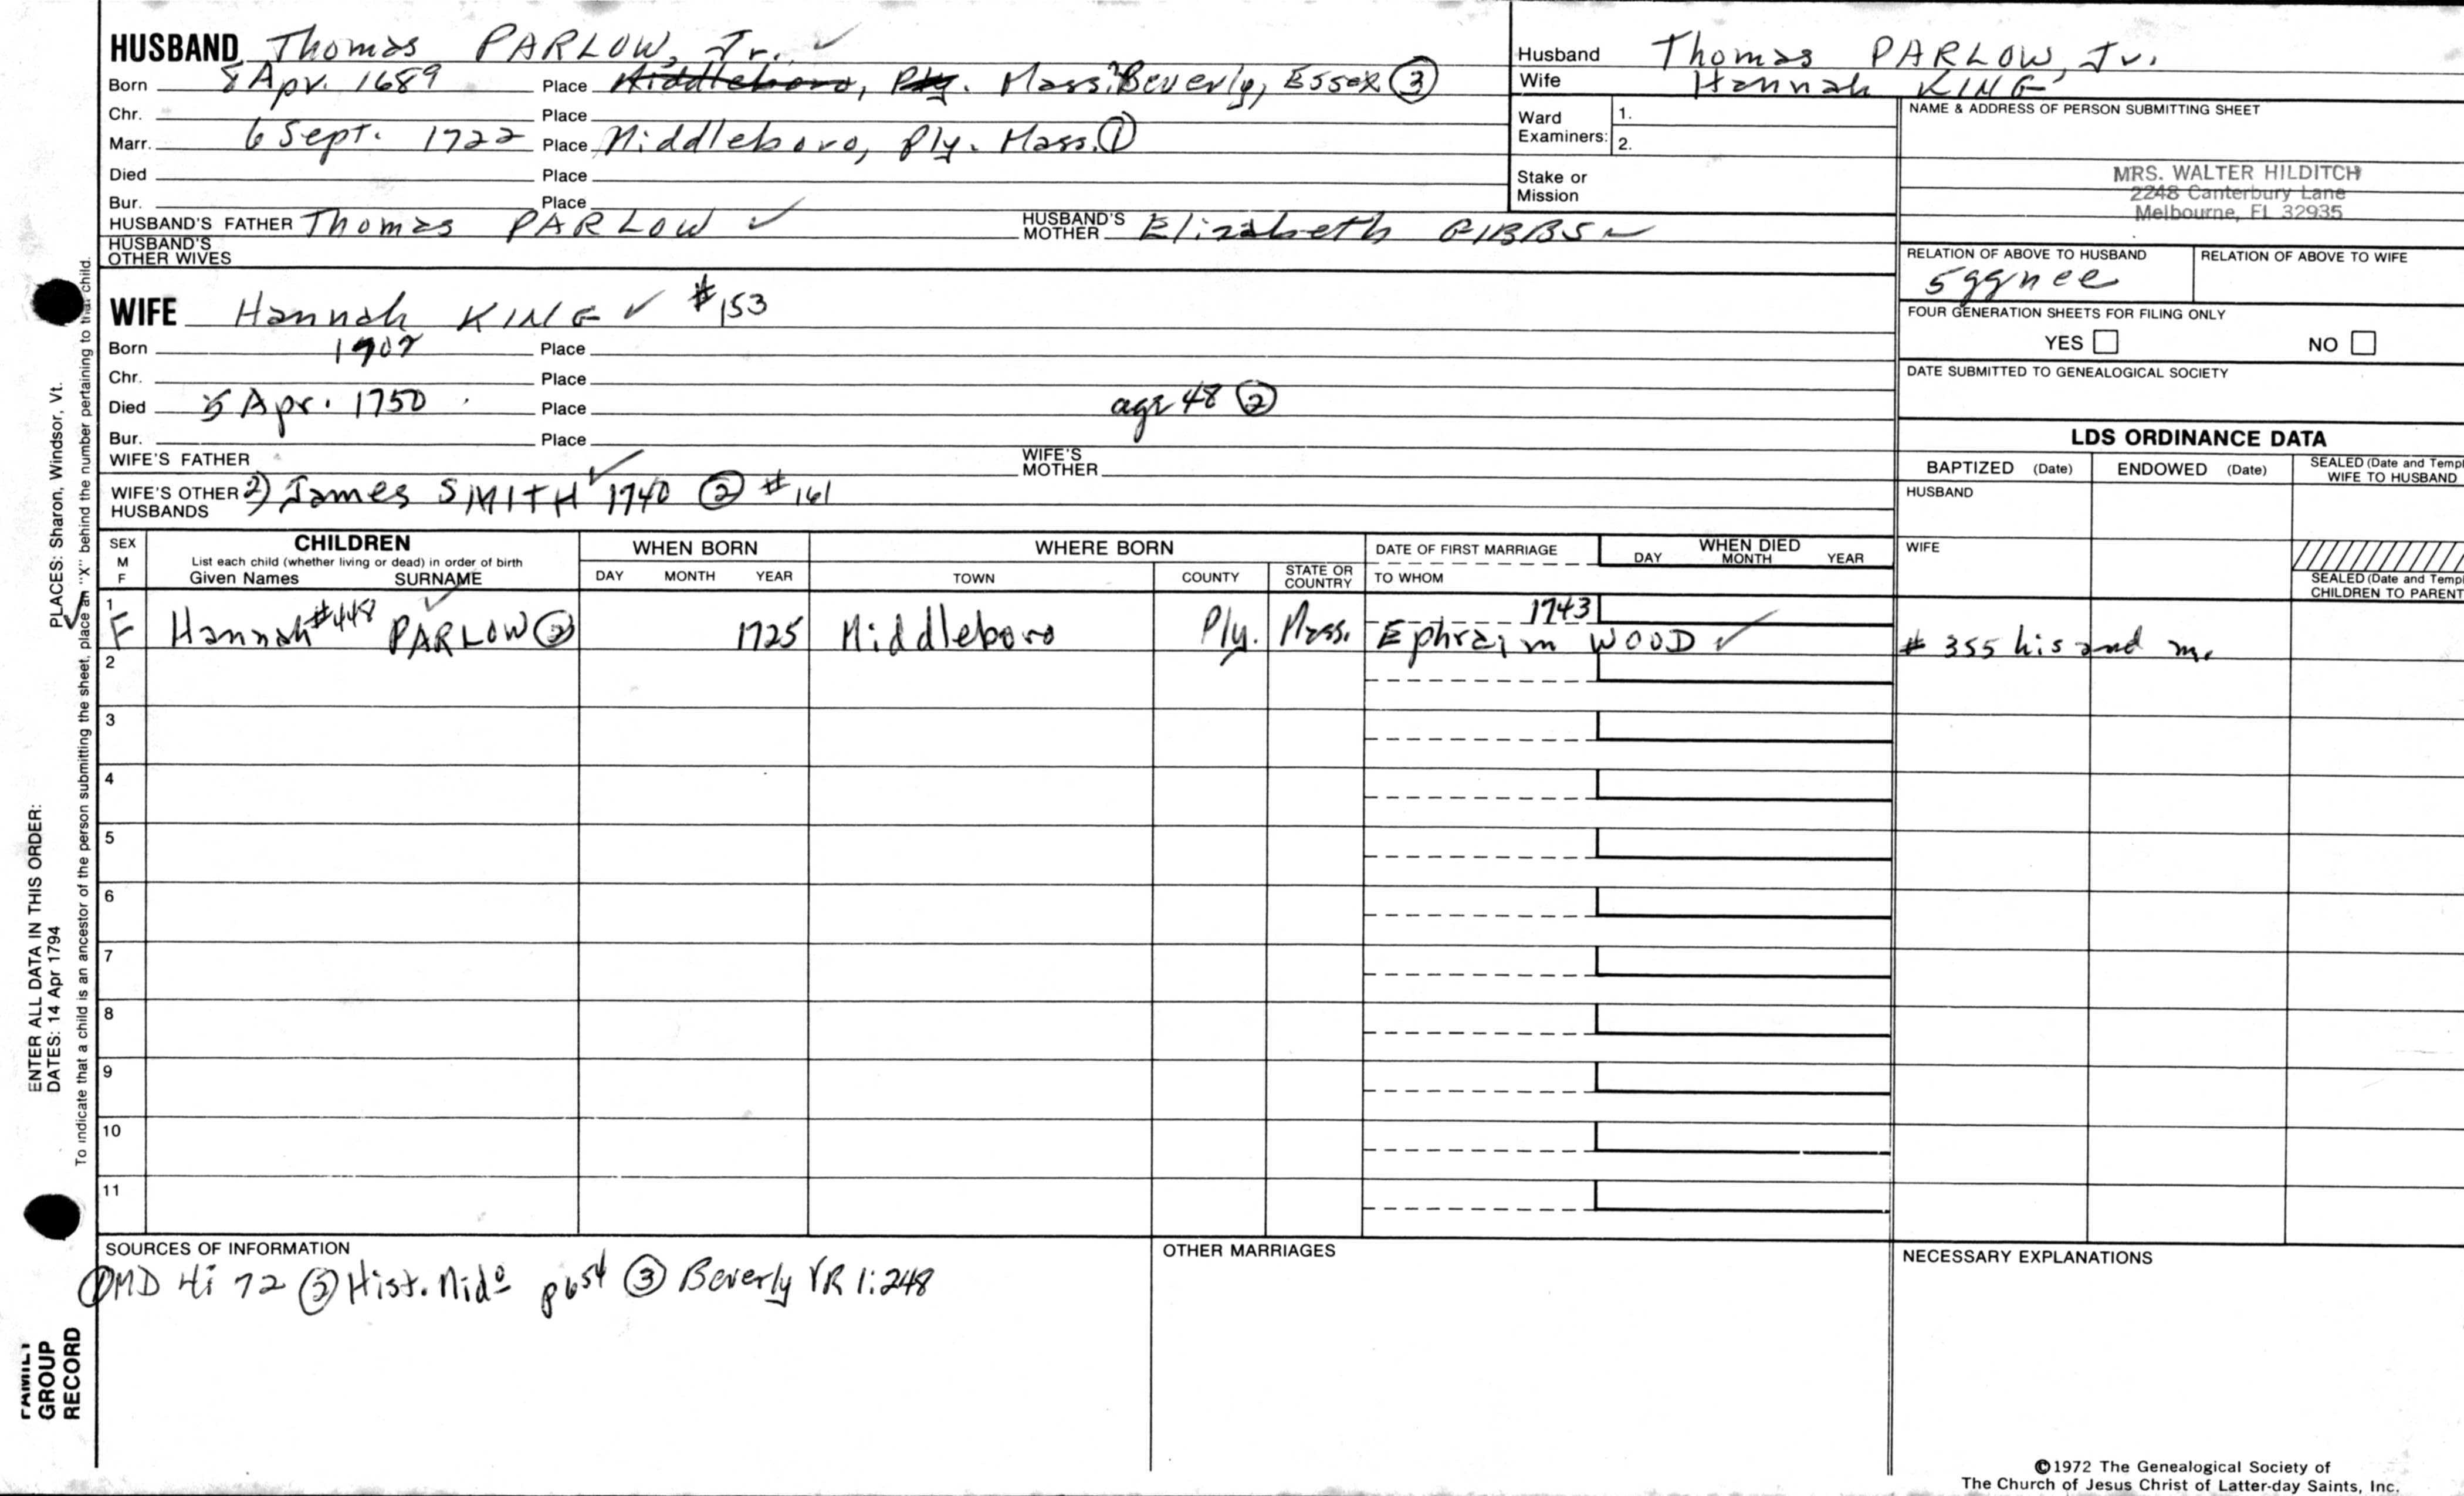 HUSBAND Thomas PARLOW, Jr. ✓
Born 8 Apr. 1689 Place Middleboro, Ply. Mass.? Beverly, Essex ③
Chr. Place
Marr. 6 Sept. 1722 Place Middleboro, Ply. Mass. ①
Died Place
Bur. Place
HUSBAND'S FATHER Thomas PARLOW ✓ HUSBAND'S MOTHER Elizabeth GIBBS ✓
HUSBAND'S OTHER WIVES
Husband Thomas PARLOW, Jr.
Wife Hannah KING
Ward Examiners: 1.
2.
Stake or Mission
NAME & ADDRESS OF PERSON SUBMITTING SHEET
MRS. WALTER HILDITCH
2248 Canterbury Lane
Melbourne, FL 32935
RELATION OF ABOVE TO HUSBAND RELATION OF ABOVE TO WIFE
5ggnee
FOUR GENERATION SHEETS FOR FILING ONLY
YES NO
DATE SUBMITTED TO GENEALOGICAL SOCIETY
WIFE Hannah KING ✓ #153
Born 1702 Place
Chr. Place
Died 5 Apr. 1750 Place age 48 ②
Bur. Place
WIFE'S FATHER WIFE'S MOTHER
WIFE'S OTHER HUSBANDS 2) James SMITH ✓ 1740 ② #161
LDS ORDINANCE DATA
BAPTIZED (Date) ENDOWED (Date) SEALED (Date and Templ
WIFE TO HUSBAND
HUSBAND
WIFE
SEALED (Date and Templ
CHILDREN TO PARENT
SEX M F
CHILDREN
List each child (whether living or dead) in order of birth
Given Names SURNAME
WHEN BORN
DAY MONTH YEAR
WHERE BORN
TOWN COUNTY STATE OR COUNTRY
DATE OF FIRST MARRIAGE
TO WHOM
WHEN DIED
DAY MONTH YEAR
1 F Hannah #448 PARLOW ② 1725 Middleboro Ply. Mass. 1743
Ephraim WOOD ✓
# 355 his 2nd m.
2
3
4
5
6
7
8
9
10
11
SOURCES OF INFORMATION
① MD 4: 72 ② Hist. Mido p654 ③ Beverly VR 1:248
OTHER MARRIAGES
NECESSARY EXPLANATIONS
©1972 The Genealogical Society of
The Church of Jesus Christ of Latter-day Saints, Inc.
PLACES: Sharon, Windsor, Vt.
ENTER ALL DATA IN THIS ORDER:
DATES: 14 Apr 1794
To indicate that a child is an ancestor of the person submitting the sheet, place an "X" behind the number pertaining to that child.
FAMILY
GROUP
RECORD